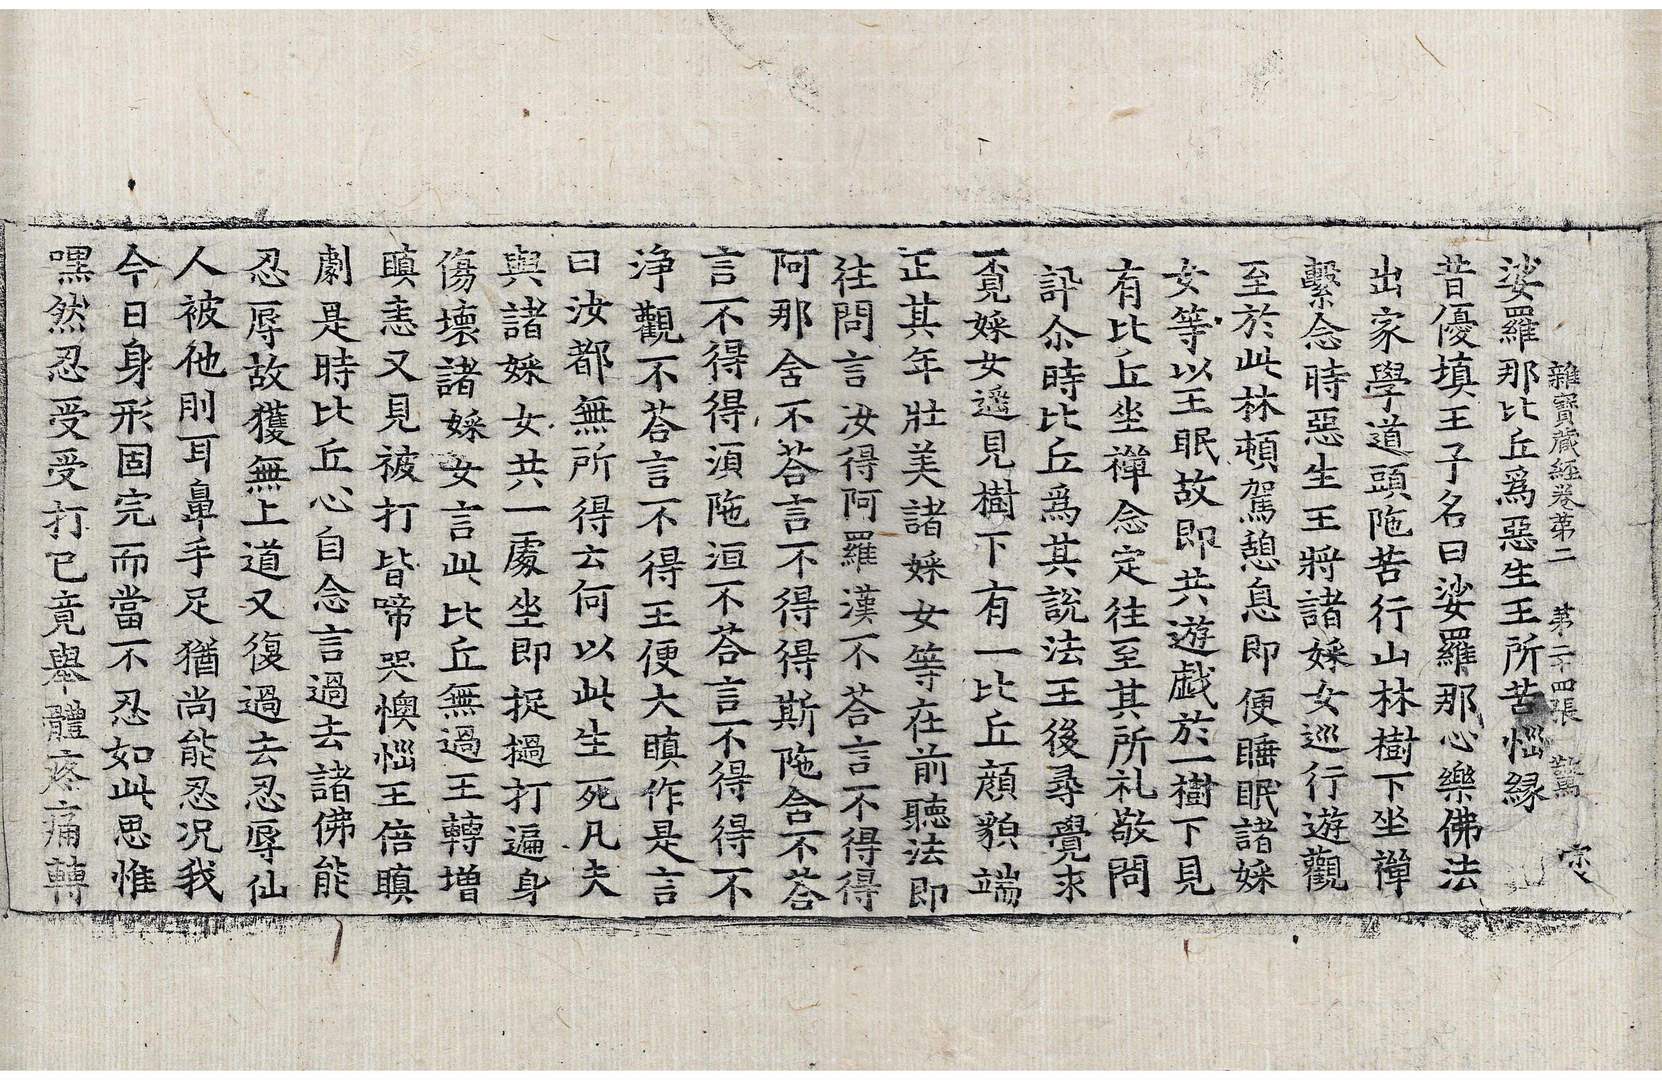 雜寶藏經卷第二　第二十四張　驚　宗
娑羅那比丘爲惡生王所苦惱緣
昔優填王子名曰娑羅那心樂佛法
出家學道頭陁苦行山林樹下坐禪
繫念時惡生王將諸婇女巡行遊觀
至於此林頓駕憩息即便睡眠諸婇
女等以王眠故即共遊戱於一樹下見
有比丘坐禪念定往至其所礼敬問
訊尒時比丘爲其說法王後尋覺求
覓婇女遥見樹下有一比丘顔貌端
正其年壯美諸婇女等在前聽法即
往問言汝得阿羅漢不荅言不得得
阿那含不荅言不得得斯陁含不荅
言不得得湏陁洹不荅言不得得不
淨觀不荅言不得王便大瞋作是言
曰汝都無所得云何以此生死凡夫
與諸婇女共一處坐即捉撾打遍身
傷壞諸婇女言此比丘無過王轉增
瞋恚又見被打皆啼哭懊惱王倍瞋
劇是時比丘心自念言過去諸佛能
忍辱故獲無上道又復過去忍辱仙
人被他刖耳鼻手足猶尚能忍况我
今日身形固完而當不忍如此思惟
嘿然忍受受打已竟舉體疼痛轉